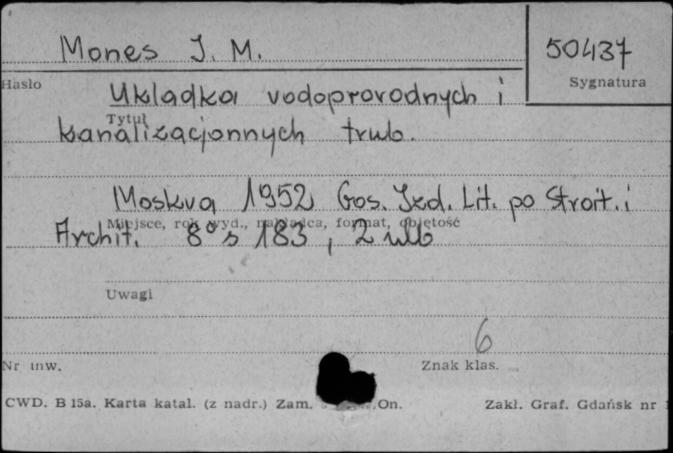 Mones J. M.
50437
Hasło
Sygnatura
Ukladka vodoprovodnych i
Tytuł
kanalizacjonnych trub.
Moskva 1952 Gos. Izd. Lit. po Stroit. i
Miejsce, rok wyd., nakładca, format, objętość
Archit. 8° s 183, 2 ulb
Uwagi
6
Nr inw.
Znak klas.
CWD. B 15a. Karta katal. (z nadr.) Zam. On.
Zakł. Graf. Gdańsk nr